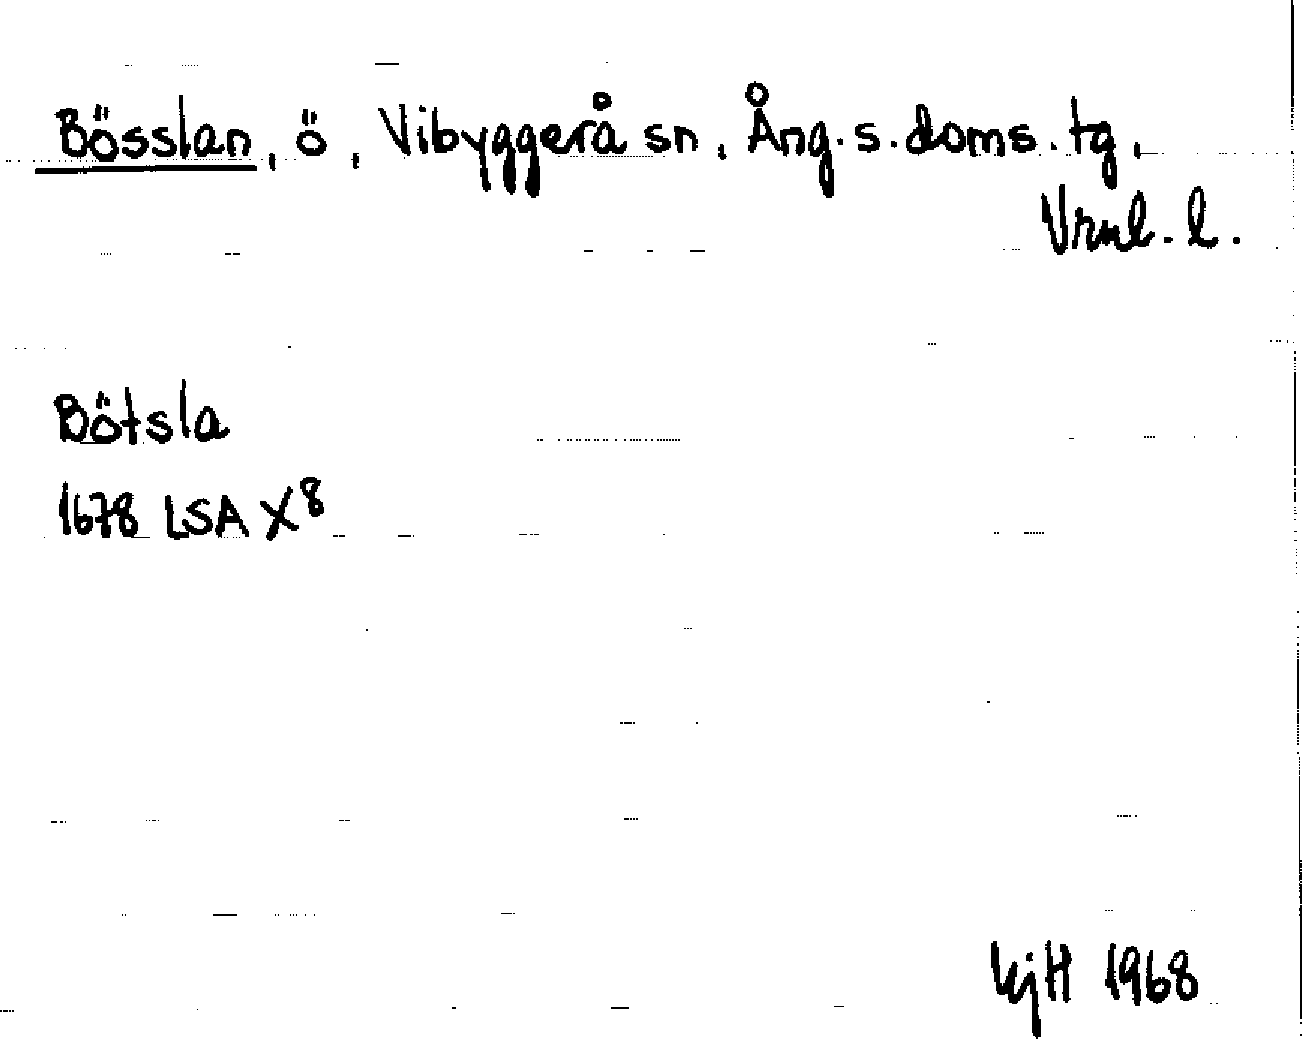 Bösslan, ö, Vibyggerå sn, Ång. s. doms. tg,
Vrnl. l.
Bötsla
1678 LSA X⁸
KjH 1968